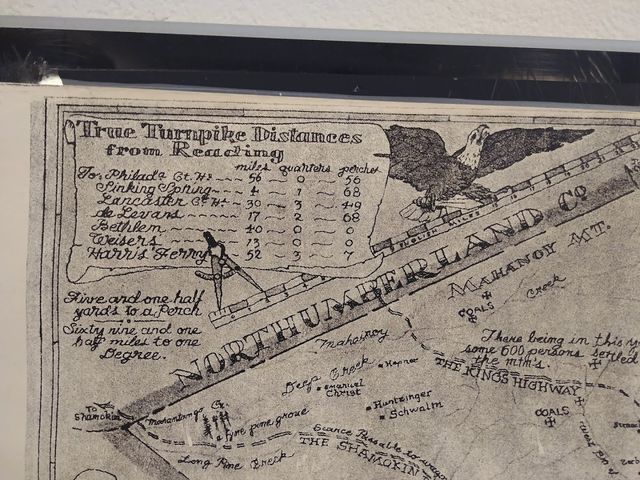 True Turnpike Distances
from Reading
miles quarters perches
To Philada Ct. Hs 56 0 56
Sinking Spring 4 1 68
Lancaster Ct H. 30 3 49
de Levans 17 2 68
Bethlem 40 0 0
Weisers 13 0 0
Harris' Ferry 52 3 7
ENGLISH MILES
Five and one half
yards to a Perch
Sixty nine and one
half miles to one
Degree.
NORTHUMBERLAND Co
MAHANOY MT.
COALS
Creek
Mahanoy
There being in this
some 600 persons settled
the mtn's.
THE KINGS HIGHWAY
Deep Creek
Hepner
Emanuel
Christ
Huntzinger
Schwalm
COALS
To
Shamokin
Mahantango Cr.
Fine pine grove
Scarce Passable to
THE SHAMOKIN
Long Pine Creek